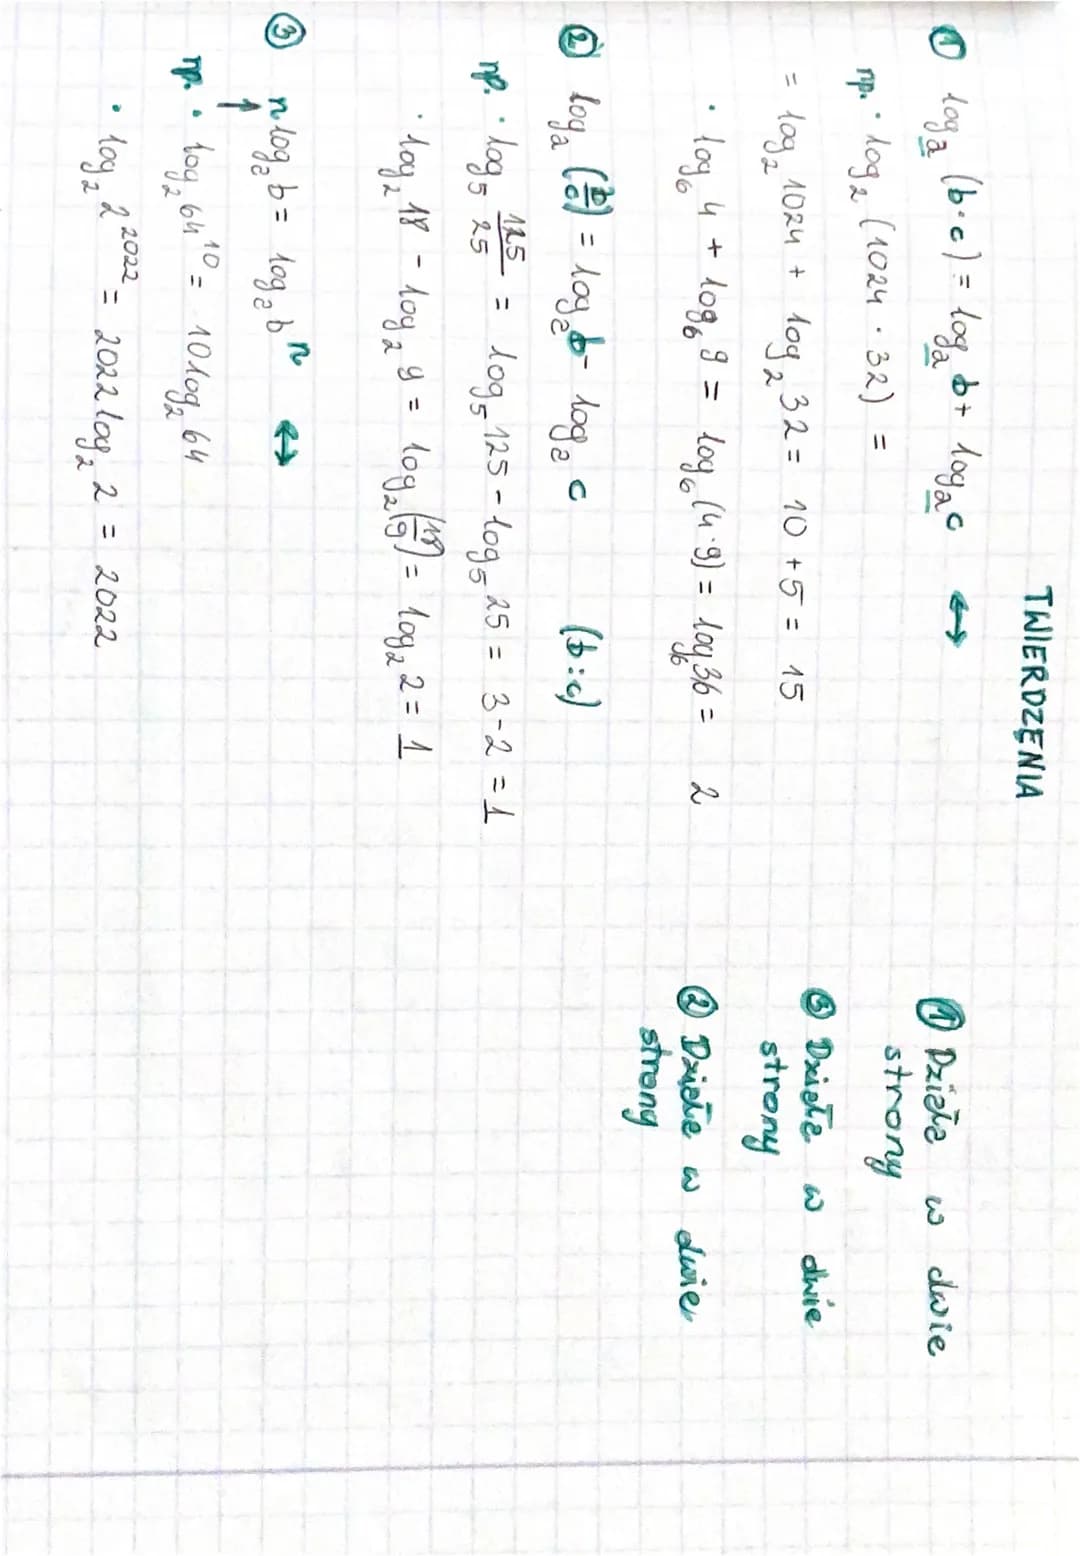 TWIERDZENIA
① logₐ (b·c) = logₐ b + logₐ c ↔
np. · log₂ (1024 · 32) =
= log₂ 1024 + log₂ 32 = 10 + 5 = 15
· log₆ 4 + log₆ 9 = log₆ (4·9) = log₆ 36 = 2
② logₐ (b/c) = logₐ b - logₐ c (b:c)
np. · log₅ 125/25 = log₅ 125 - log₅ 25 = 3-2 = 1
· log₂ 18 - log₂ 9 = log₂ (18/9) = log₂ 2 = 1
③ n logₐ b = logₐ bⁿ ↔
↑
np. · log₂ 64¹⁰ = 10 log₂ 64
· log₂ 2²⁰²² = 2022 log₂ 2 = 2022
① Działa w dwie
strony
③ Działa w dwie
strony
② Działa w dwie
strony